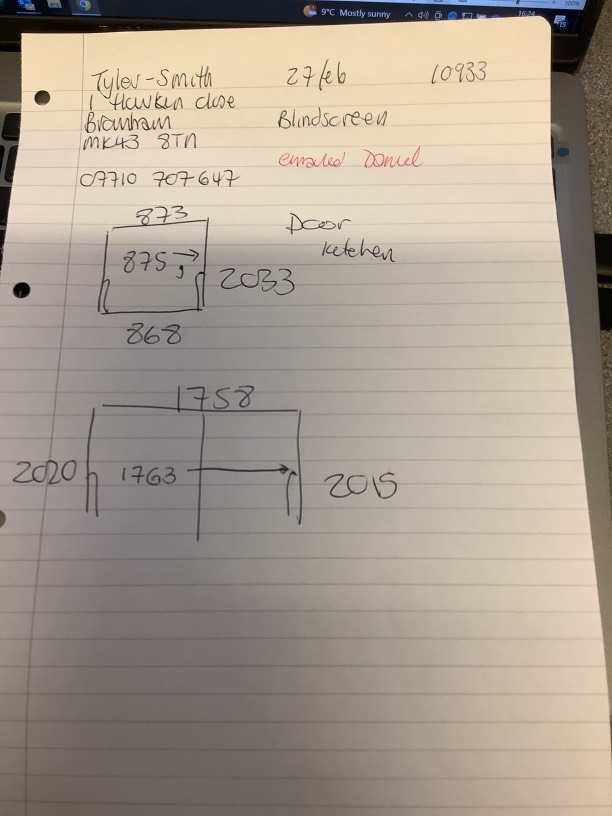 9°C Mostly sunny
16:24
100%
15
Tyler-Smith 27 feb 10933
1 Hawken close
Bromham Blindscreen
MK43 8TN
emailed Daniel
07710 707647
873
Door
875, →
kitchen
2033
868
1758
2020 1763 → 2015